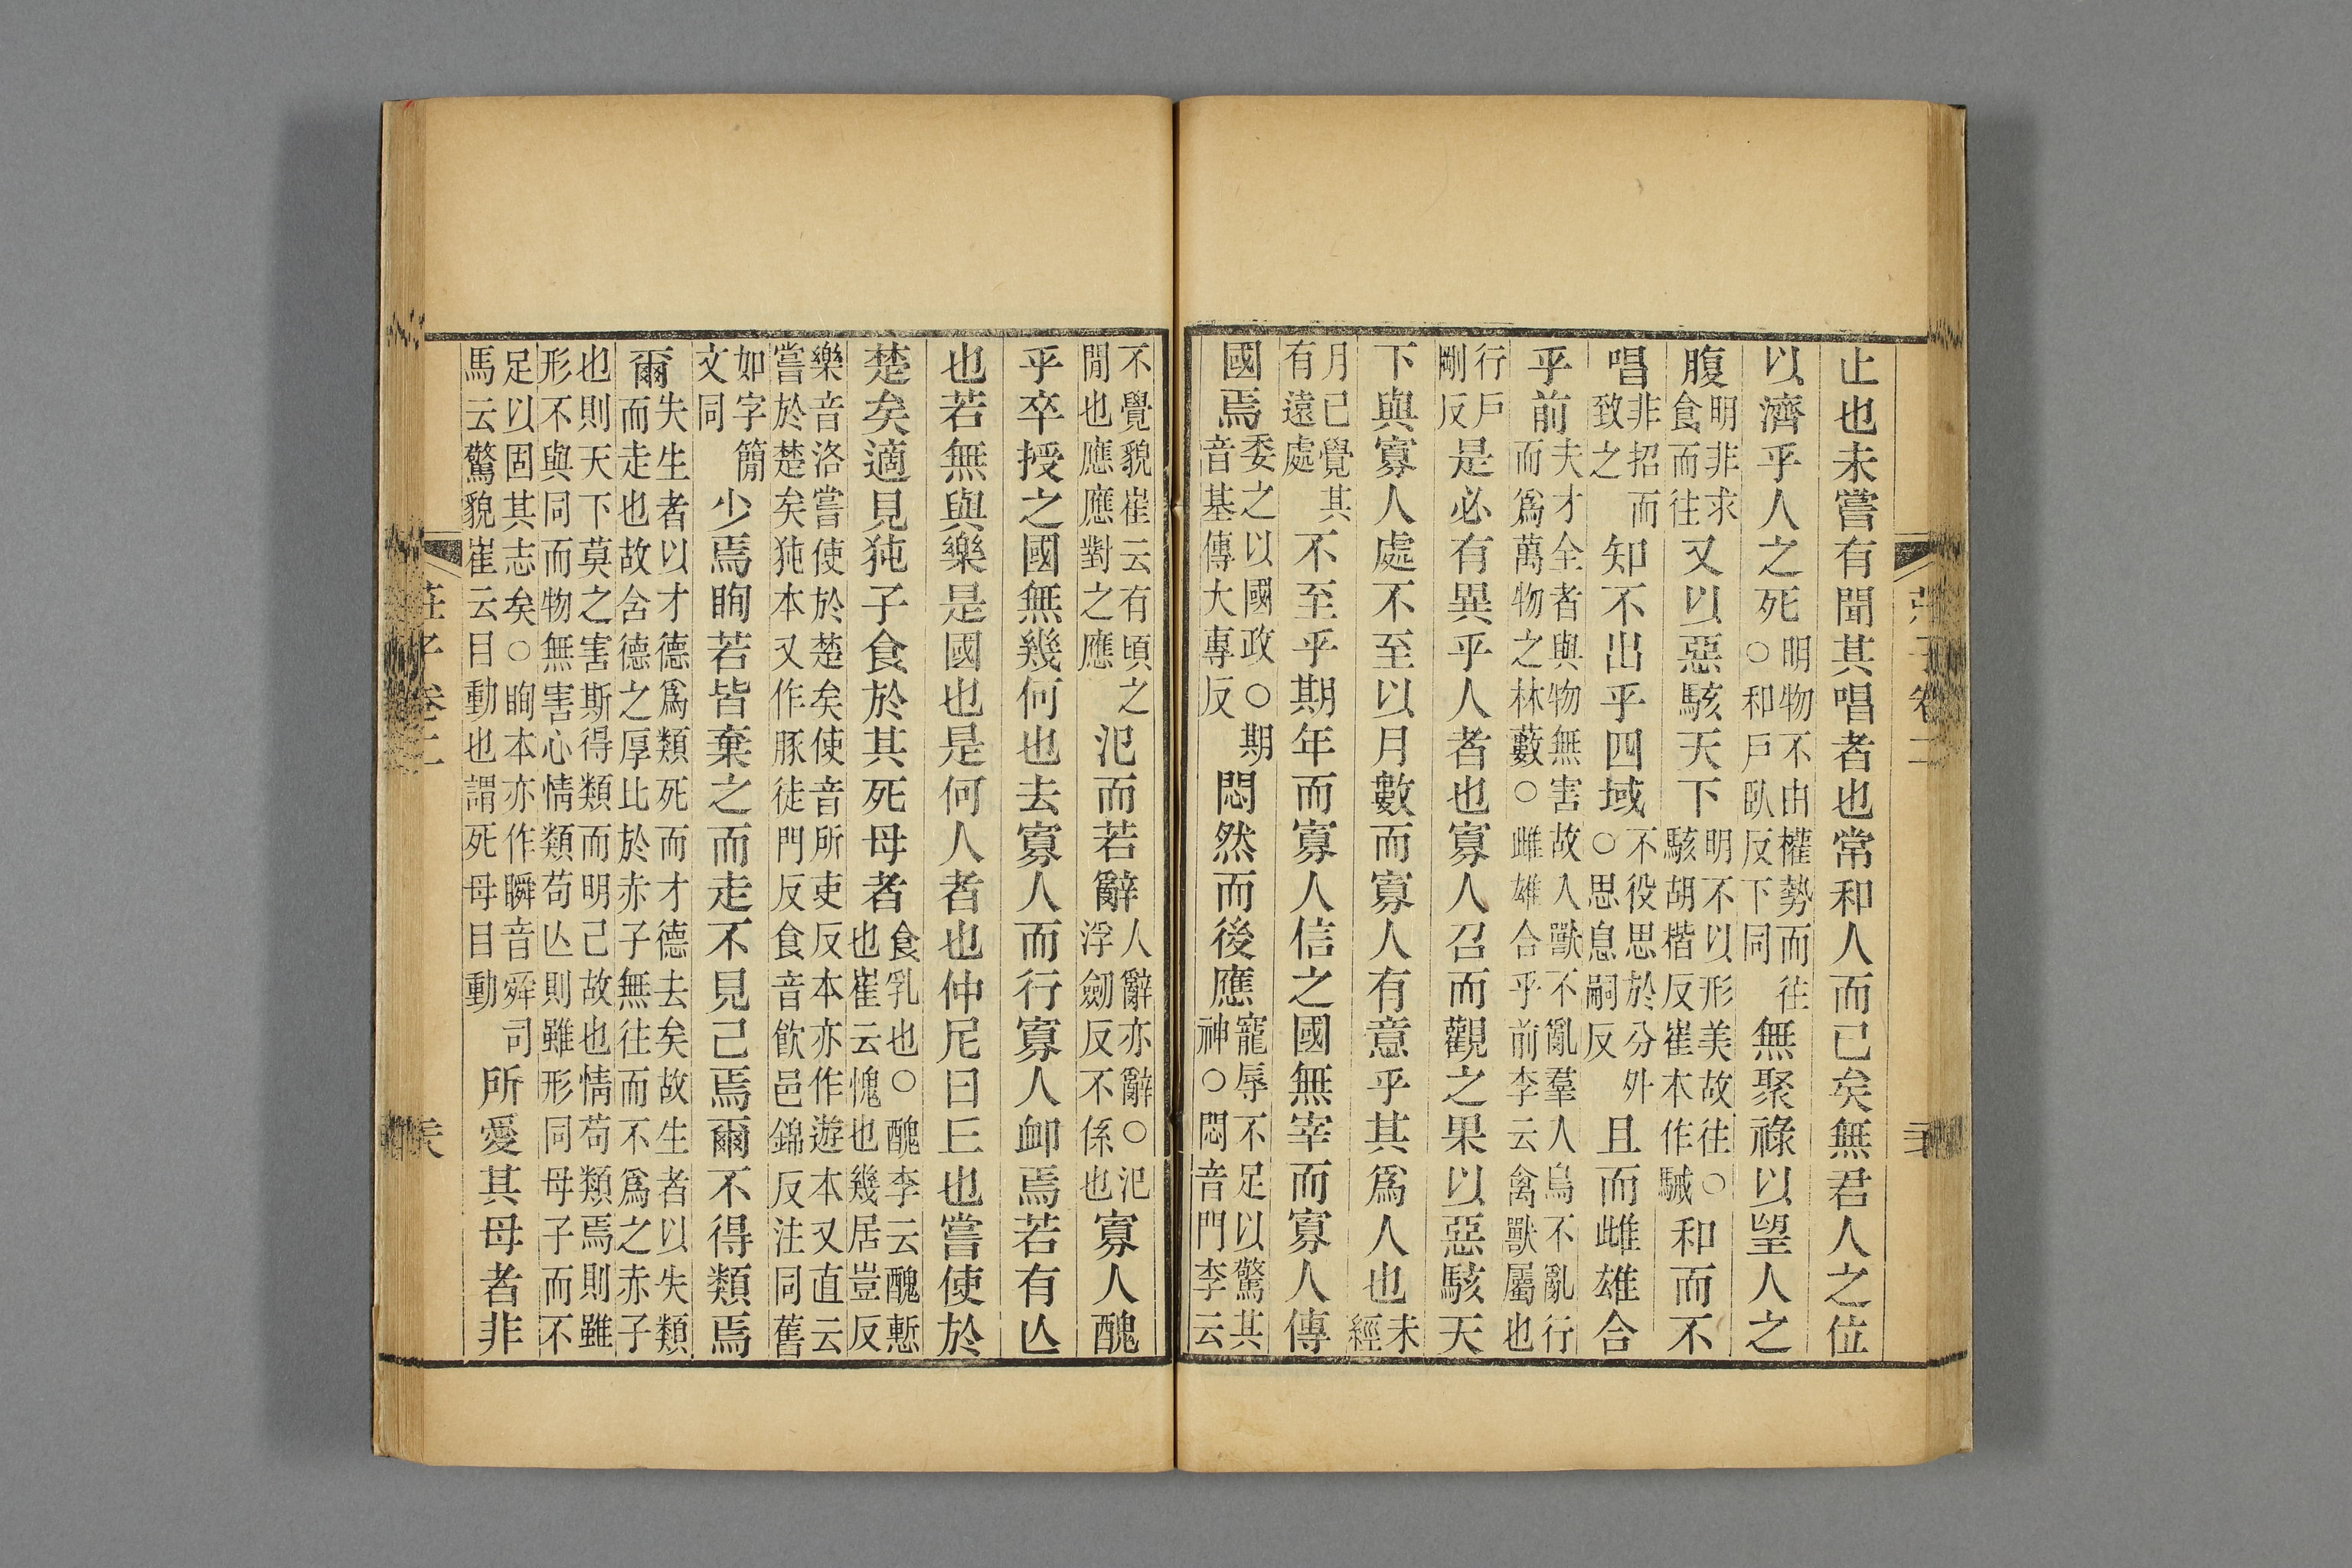 莊子卷二
止也未嘗有聞其唱者也常和人而已矣無君人之位
以濟乎人之死明物不由權勢而往○和戸臥反下同無聚祿以望人之
腹明非求食而往又以惡駭天下明不以形美故往○駭胡楷反崔本作駴和而不
唱非招而致之知不出乎四域不役思於分外○思息嗣反且而雌雄合
乎前夫才全者與物無害故入獸不亂羣入鳥不亂行而爲萬物之林藪○雌雄合乎前李云禽獸屬也
行戸剛反是必有異乎人者也寡人召而觀之果以惡駭天
下與寡人處不至以月數而寡人有意乎其爲人也未經
月已覺其有遠處不至乎期年而寡人信之國無宰而寡人傳
國焉委之以國政○期音基傳大專反悶然而後應寵辱不足以驚其神○悶音門李云
不覺貌崔云有頃之閒也應應對之應氾而若辭人辭亦辭○氾浮劒反不係也寡人醜
乎卒授之國無幾何也去寡人而行寡人卹焉若有亾
也若無與樂是國也是何人者也仲尼曰丘也嘗使於
楚矣適見㹠子食於其死母者食乳也○醜李云醜慙也崔云愧也幾居豈反
樂音洛嘗使於楚矣使音所吏反本亦作遊本又直云嘗於楚矣㹠本又作豚徒門反食音飲邑錦反注同舊
如字簡文同少焉眴若皆棄之而走不見己焉爾不得類焉
爾失生者以才德爲類死而才德去矣故生者以失類而走也故含德之厚比於赤子無往而不爲之赤子
也則天下莫之害斯得類而明己故也情苟類焉則雖形不與同而物無害心情類苟亾則雖形同母子而不
足以固其志矣○眴本亦作瞬音舜司馬云驚貌崔云目動也謂死母目動所愛其母者非
莊子卷二